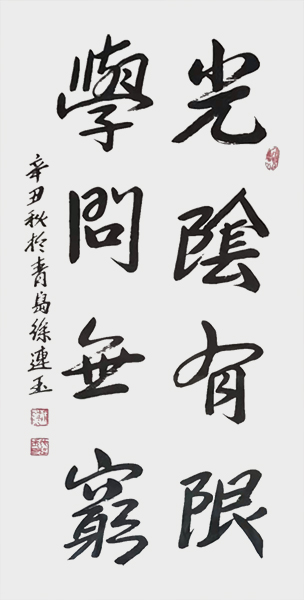 光陰有限
學問無窮
辛丑秋於青島徐連玉